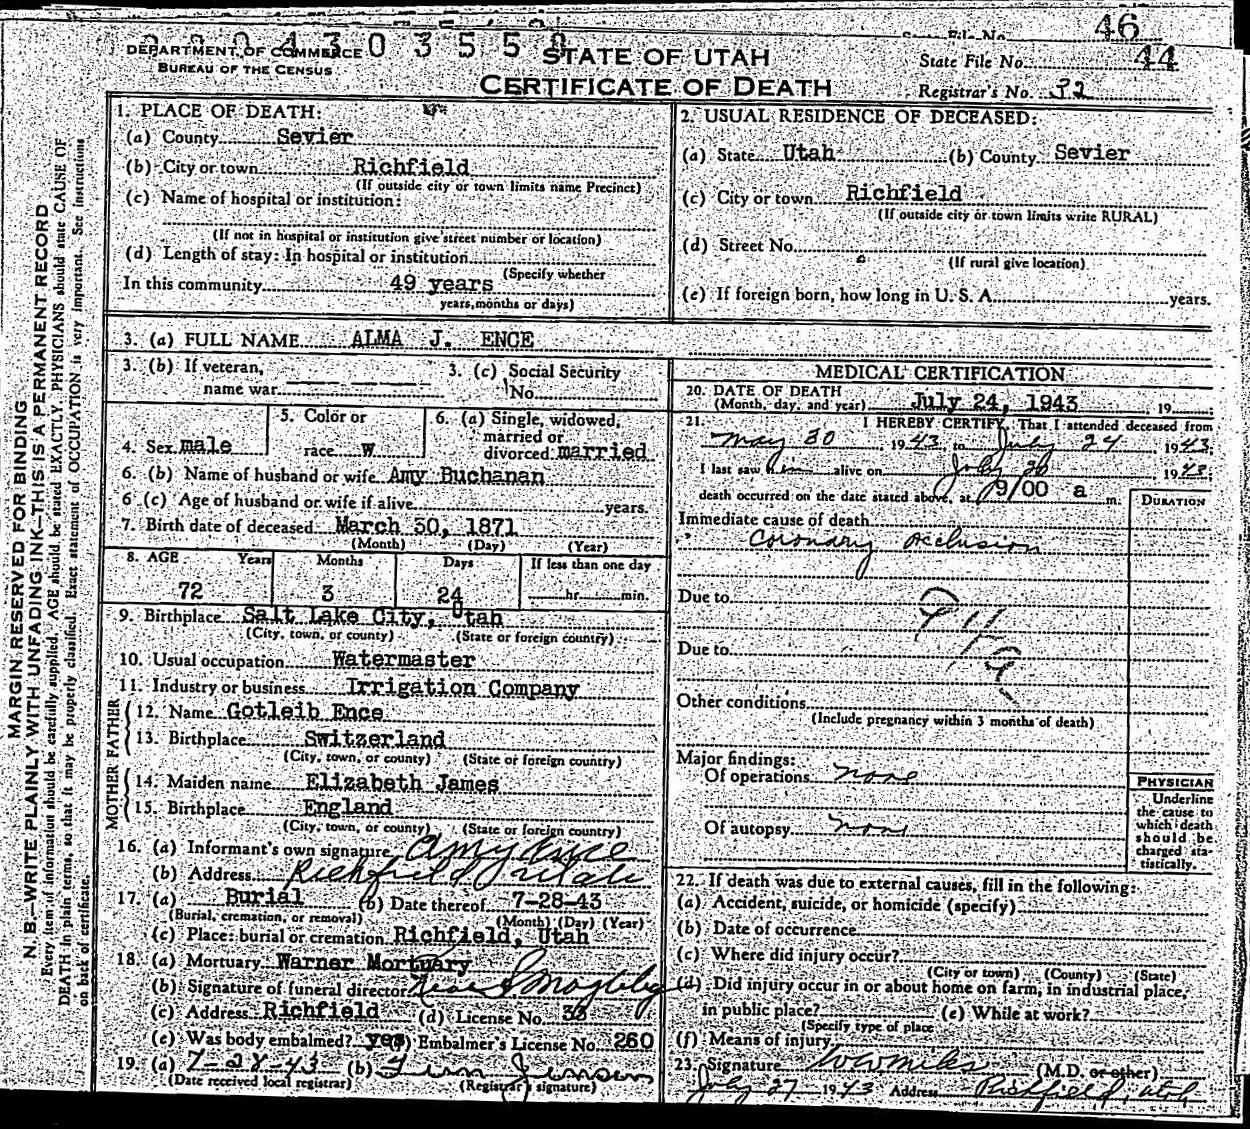 46
DEPARTMENT OF COMMERCE
BUREAU OF THE CENSUS
STATE OF UTAH
CERTIFICATE OF DEATH
State File No. 44
Registrar's No. 32
MARGIN RESERVED FOR BINDING
N. B.—WRITE PLAINLY WITH UNFADING INK—THIS IS A PERMANENT RECORD
Every item of information should be carefully supplied. AGE should be stated EXACTLY. PHYSICIANS should state CAUSE OF
DEATH in plain terms, so that it may be properly classified. Exact statement of OCCUPATION is very important. See instructions
on back of certificate.
1. PLACE OF DEATH:
(a) County Sevier
(b) City or town Richfield
(If outside city or town limits name Precinct)
(c) Name of hospital or institution:
(If not in hospital or institution give street number or location)
(d) Length of stay: In hospital or institution
(Specify whether
In this community 49 years
years, months or days)
2. USUAL RESIDENCE OF DECEASED:
(a) State Utah (b) County Sevier
(c) City or town Richfield
(If outside city or town limits write RURAL)
(d) Street No.
(If rural give location)
(e) If foreign born, how long in U. S. A. years.
3. (a) FULL NAME ALMA J. ENCE
3. (b) If veteran,
name war
3. (c) Social Security
No.
4. Sex male
5. Color or
race W
6. (a) Single, widowed,
married or
divorced married
6. (b) Name of husband or wife Amy Buchanan
6 (c) Age of husband or wife if alive years.
7. Birth date of deceased March 30, 1871
(Month) (Day) (Year)
8. AGE Years Months Days If less than one day
72 3 24 hr. min.
9. Birthplace Salt Lake City, Utah
(City, town, or county) (State or foreign country)
10. Usual occupation Watermaster
11. Industry or business Irrigation Company
FATHER
12. Name Gotleib Ence
13. Birthplace Switzerland
(City, town, or county) (State or foreign country)
MOTHER
14. Maiden name Elizabeth James
15. Birthplace England
(City, town, or county) (State or foreign country)
16. (a) Informant's own signature Amy Ence
(b) Address Richfield Utah
17. (a) Burial (b) Date thereof 7-28-43
(Burial, cremation, or removal) (Month) (Day) (Year)
(c) Place: burial or cremation Richfield, Utah
18. (a) Mortuary Warner Mortuary
(b) Signature of funeral director
(c) Address Richfield (d) License No. 33
(e) Was body embalmed? yes (f) Embalmer's License No. 260
19. (a) 7-28-43 (b)
(Date received local registrar) (Registrar's signature)
MEDICAL CERTIFICATION
20. DATE OF DEATH
(Month, day, and year) July 24, 1943 19
21. I HEREBY CERTIFY, That I attended deceased from
May 30 1943 to July 24 1943.
I last saw him alive on July 20 1943.
death occurred on the date stated above, at 9/00 a m.
DURATION
Immediate cause of death
Coronary occlusion
Due to
Due to
Other conditions
(Include pregnancy within 3 months of death)
Major findings:
Of operations none
Of autopsy none
PHYSICIAN
Underline
the cause to
which death
should be
charged sta-
tistically.
22. If death was due to external causes, fill in the following:
(a) Accident, suicide, or homicide (specify)
(b) Date of occurrence
(c) Where did injury occur?
(City or town) (County) (State)
(d) Did injury occur in or about home on farm, in industrial place,
in public place? (e) While at work?
(Specify type of place
(f) Means of injury
23. Signature (M.D. or other)
July 27 1943 Address Richfield, Utah